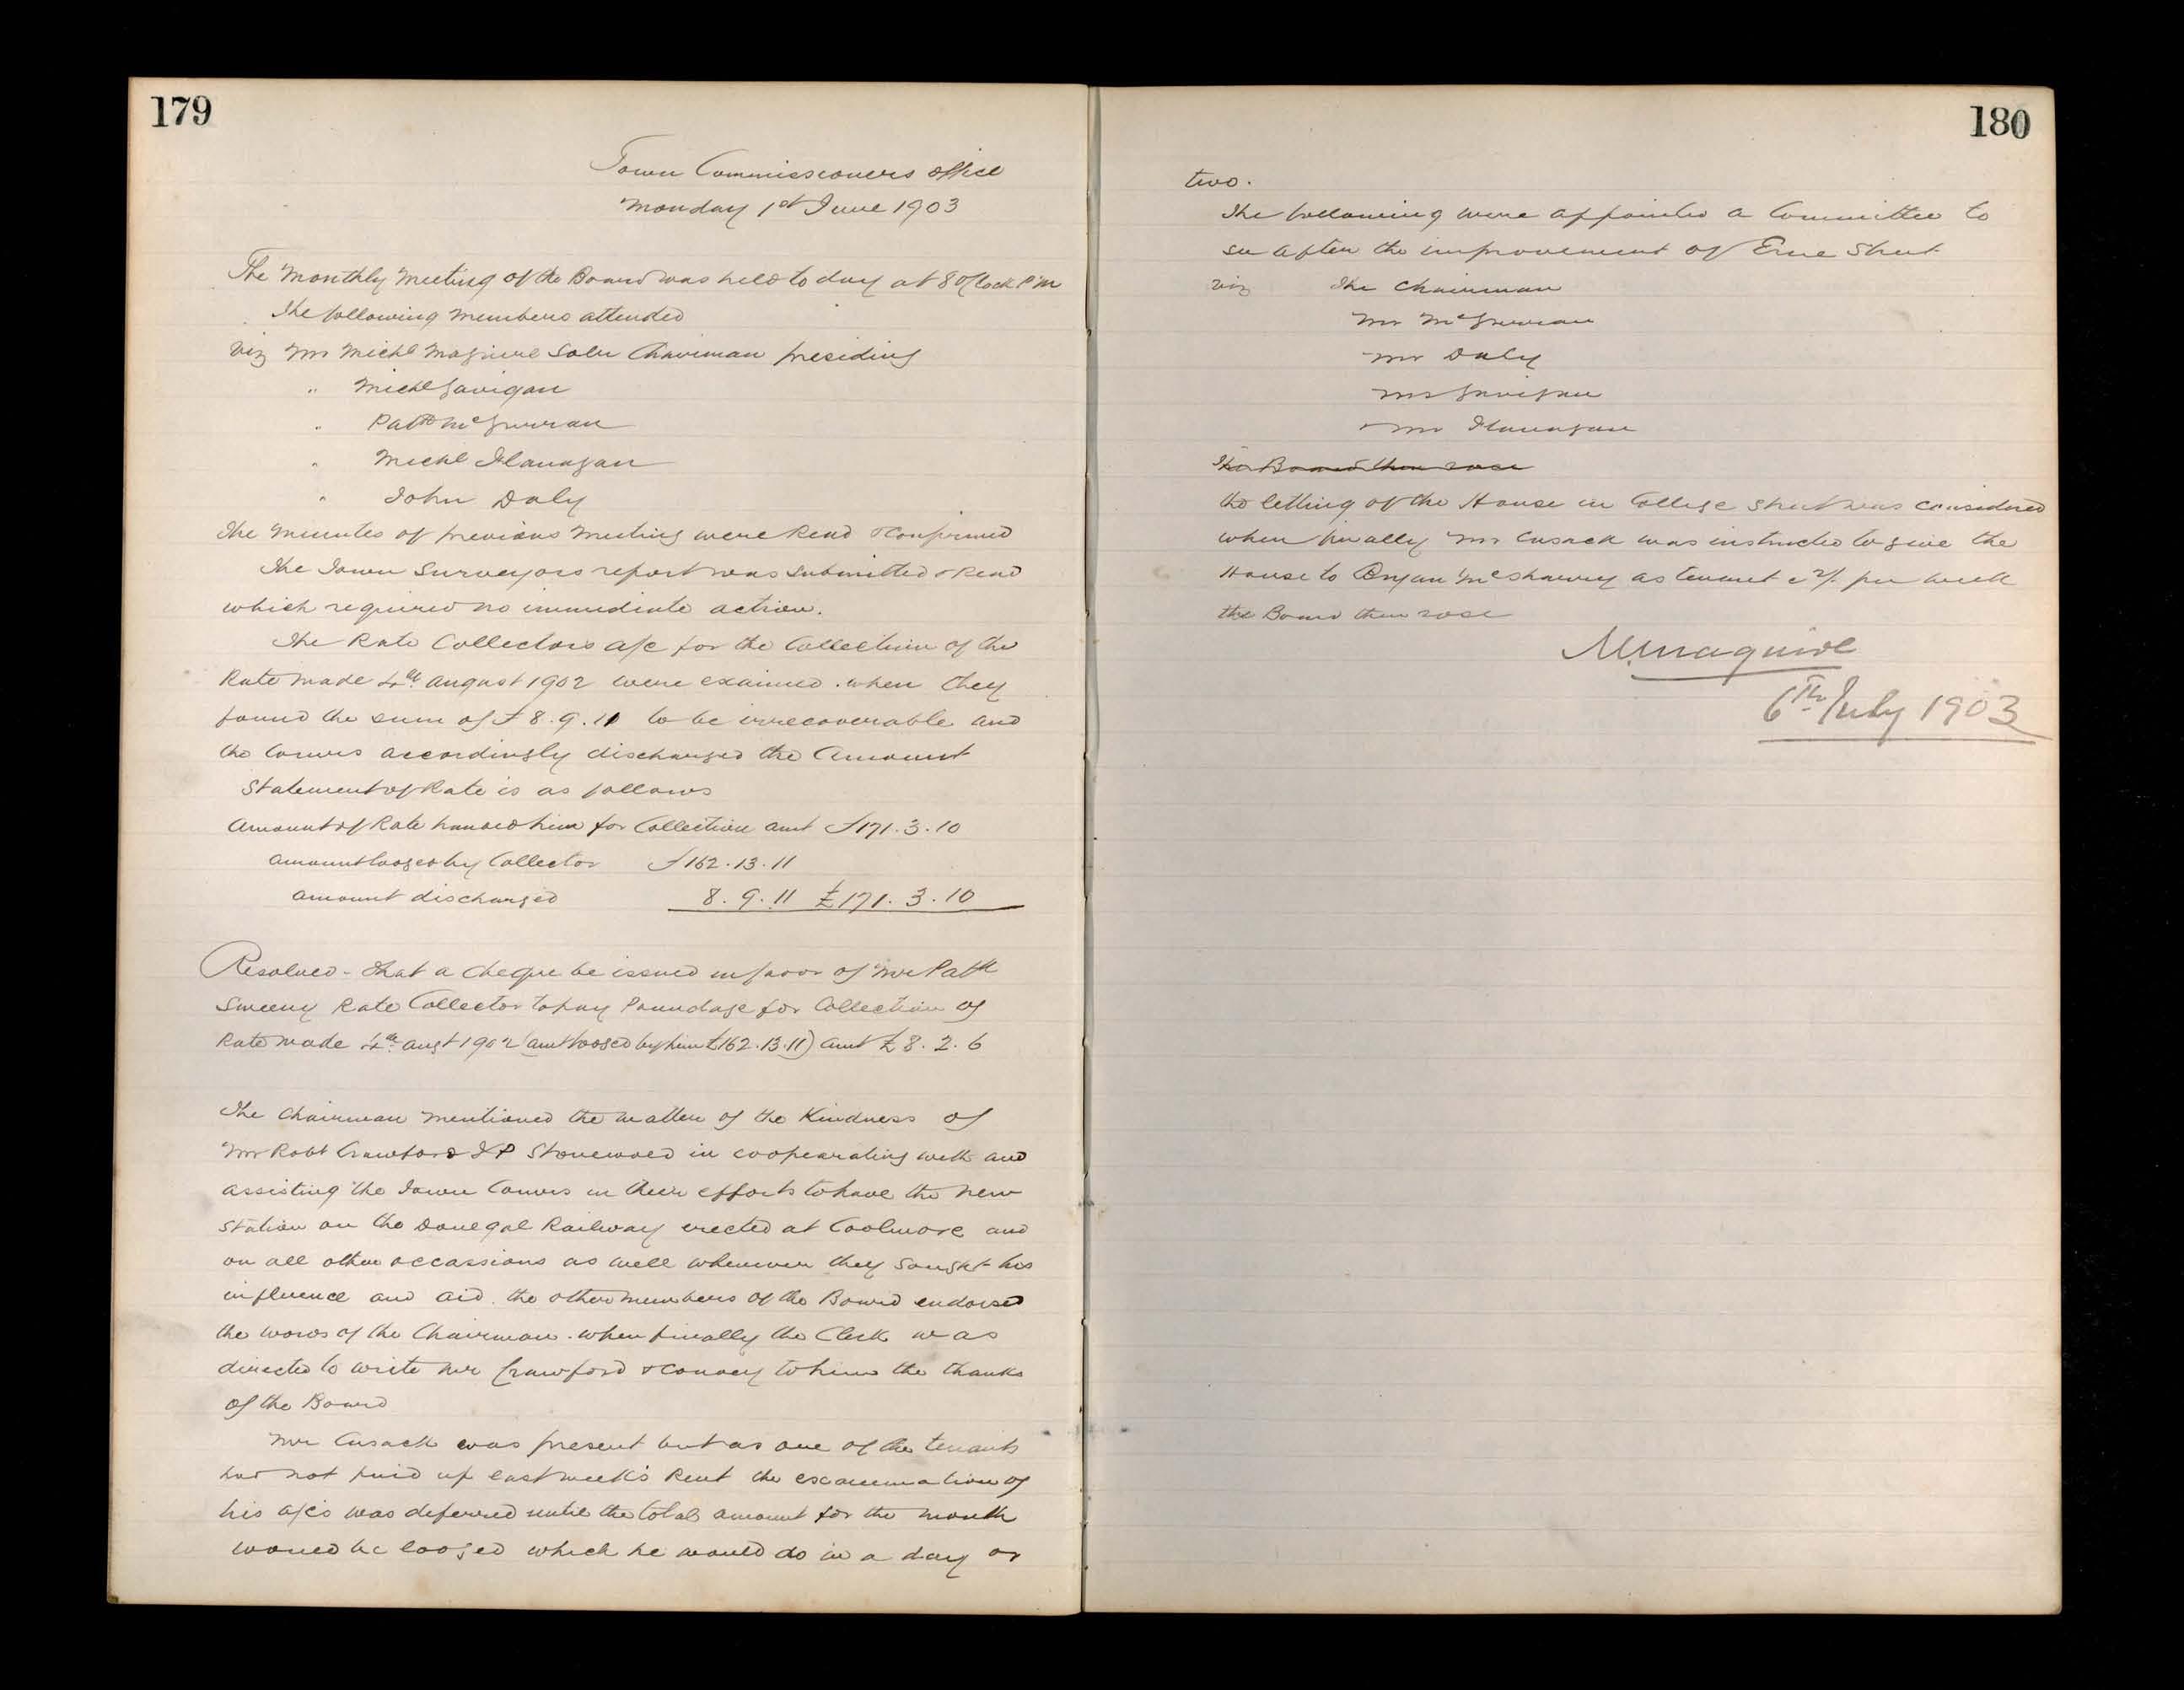 179
Town Commissioners office
Monday 1st June 1903
The Monthly Meeting of the Board was held to day at 8 O'Clock P.M
The following Members attended
Viz Mr Michl Maguire Solr Chairman presiding
" Michl Gavigan
" Patk McGurran
" Michl Flanagan
" John Daly
The Minutes of previous Meeting were Read & Confirmed
The Town Surveyors report was submitted & Read
which required no immediate action.
The Rate Collectors a/c for the Collection of the
Rate made 4th August 1902 were examined. when they
found the sum of £8.9.11 to be irrecoverable and
the Comrs accordingly discharged the Amount
Statement of Rate is as follows
Amount of Rate handed him for Collection amt £171.3.10
Amount lodged by Collector £162.13.11
Amount discharged 8.9.11 £171.3.10
Resolved - That a Cheque be issued in favor of Mr Patk
Sweeny Rate Collector to pay Poundage for Collection of
Rate made 4th Augt 1902 (amt lodged by him £162.13.11) amt £8.2.6
The Chairman Mentioned the matter of the Kindness of
Mr Robt Crawford J P Stonewold in coopearating with and
assisting the Town Comrs in their efforts to have the New
Station on the Donegal Railway erected at Coolmore and
on all other occassions as well whenever they sought his
influence and aid. the other members of the Board endorsed
the words of the Chairman. when finally the Clerk was
directed to write Mr Crawford & Convey to him the thanks
of the Board
Mr Cusack was present but as one of the tenants
had not paid up last week's Rent the examination of
his a/cs was deferred until the total amount for the Month
would be lodged which he would do in a day or
180
two.
The following were appointed a Committee to
see after the improvement of Erne Street
viz The Chairman
Mr McGurran
Mr Daly
Mr Gavigan
Mr Flanagan
The Board then rose
the letting of the House in College Street was considered
when finally Mr Cusack was instructed to give the
House to Bryan McSharry as tenant @ 2/- per week
the Board then rose
M. Maguire
6th July 1903